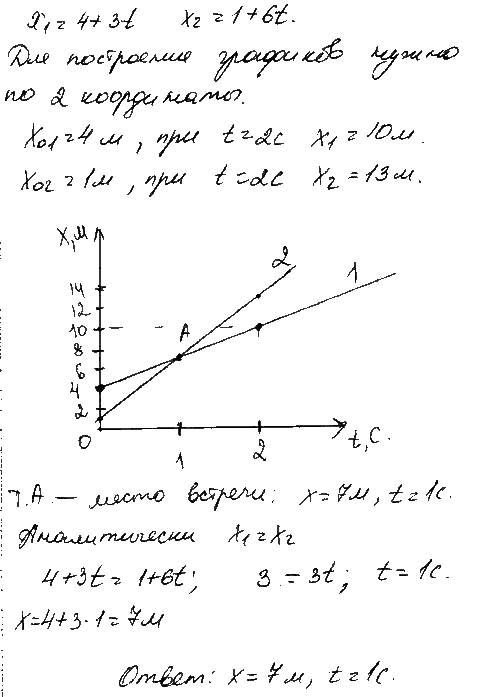 x₁ = 4 + 3t   x₂ = 1 + 6t.
Для построение графиков нужно
по 2 координаты.
x₀₁ = 4 м, при t = 2с x₁ = 10м.
x₀₂ = 1м, при t = 2с x₂ = 13м.
x, м
2
1
14
12
10
A
8
6
4
2
0
1
2
t, с.
т. А — место встречи: x = 7м, t = 1с.
Аналитически x₁ = x₂
4 + 3t = 1 + 6t; 3 = 3t; t = 1с.
x = 4 + 3 · 1 = 7м
Ответ: x = 7м, t = 1с.